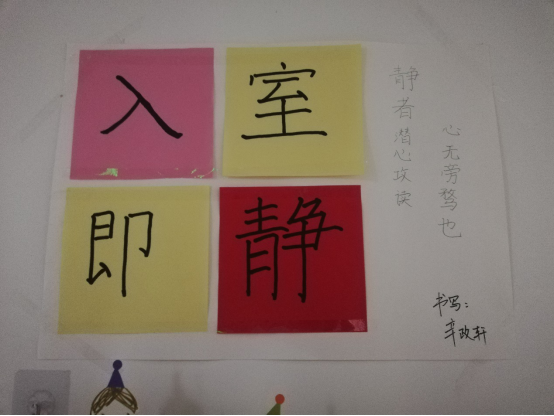 入室
即静
静者潜心攻读
心无旁骛也
书写：
辛政轩